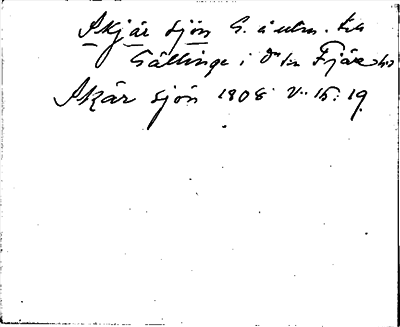 Skjär sjön G. å utm. till
Gällinge i Fjäre hd
Skär sjön 1808 V. 15: 19